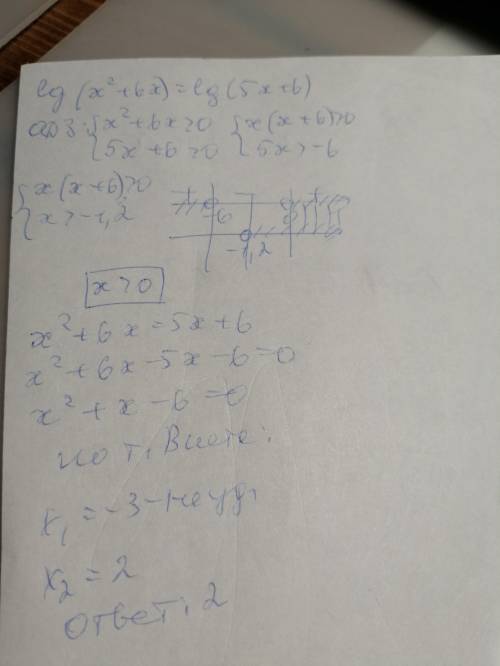 lg(x²+6x)=lg(5x+6)
ОДЗ: {x²+6x>0 {x(x+6)>0
{5x+6>0 {5x>-6
{x(x+6)>0
{x>-1,2
+ - +
-6 0
-1,2
x>0
x²+6x=5x+6
x²+6x-5x-6=0
x²+x-6=0
по т. Виета:
x₁=-3-не уд.
x₂=2
Ответ: 2